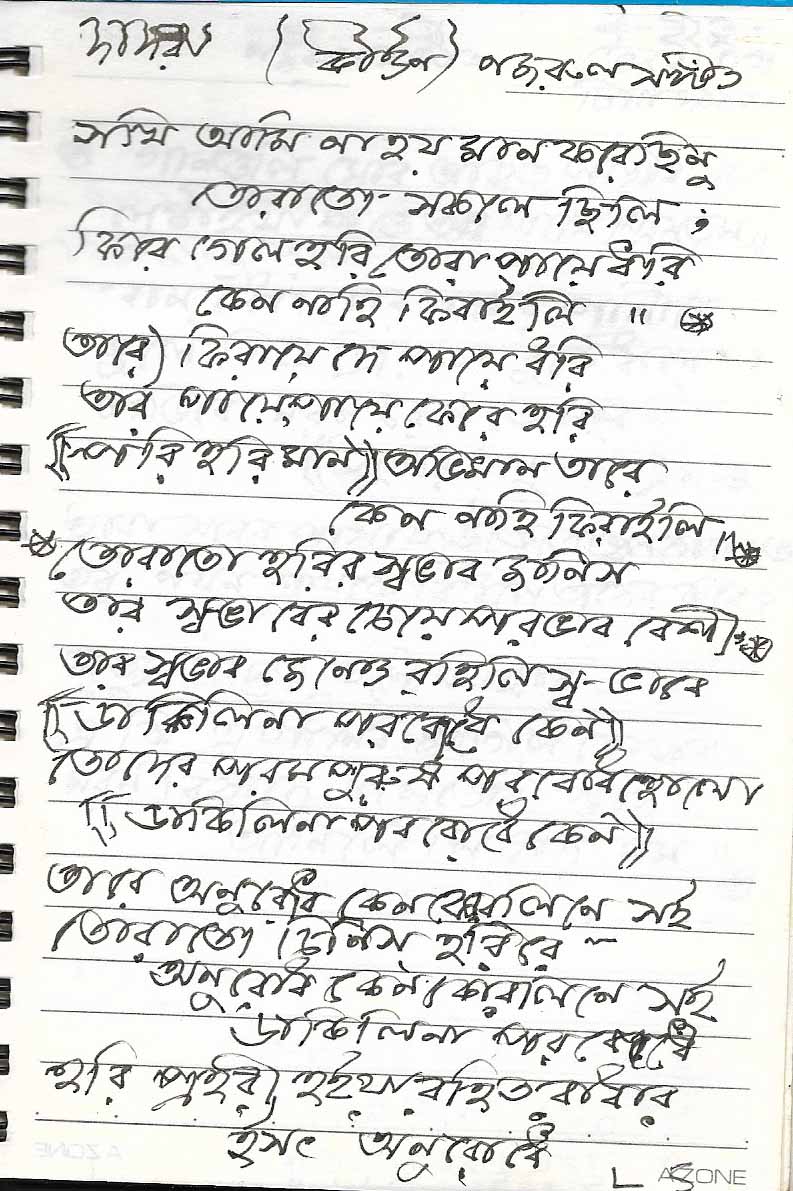 দাদরা (কীর্তন) নজরুল সঙ্গীত
সখি আমি না হয় মান করেছিনু
তোরাতো সকলে ছিলি ;
ফিরে গেল হরি তোরা পায়ে ধরি
কেন নাহি ফিরাইলি ॥
তারে) ফিরায়ে দে পায়ে ধরি
তার পায়ে পায়ে ফেরে হরি
((পরিহরি মান)) অভিমান তারে
কেন নাহি ফিরাইলি ॥
তোরাতো হরির স্বভাব জানিস
তার স্ব-ভাবের চেয়ে পরভাব বেশী।
তার স্বভাব জেনেও রহিলি স্ব-ভাবে
((ডাকিলিনা পরবোধে কেন))
তোদের পরমপুরুষ পরবোধিলো
((ডাকিলিনা পরবোধে কেন))
তারে অনুরোধ কেন করলিনে সই
তোরাতো চিনিস হরিরে -
অনুরোধ কেন করলিনে সই
ডাকিলিনা পরবোধে
হরি প্রহরী হইয়া রহিত রাধার
ঈষৎ অনুরোধে
AZONE